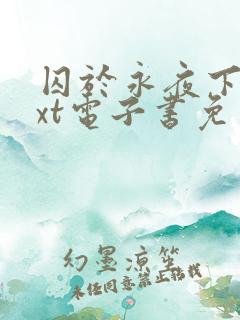 囚於永夜下
xt電子書免
幻墨涼笙
未经同意禁止转载